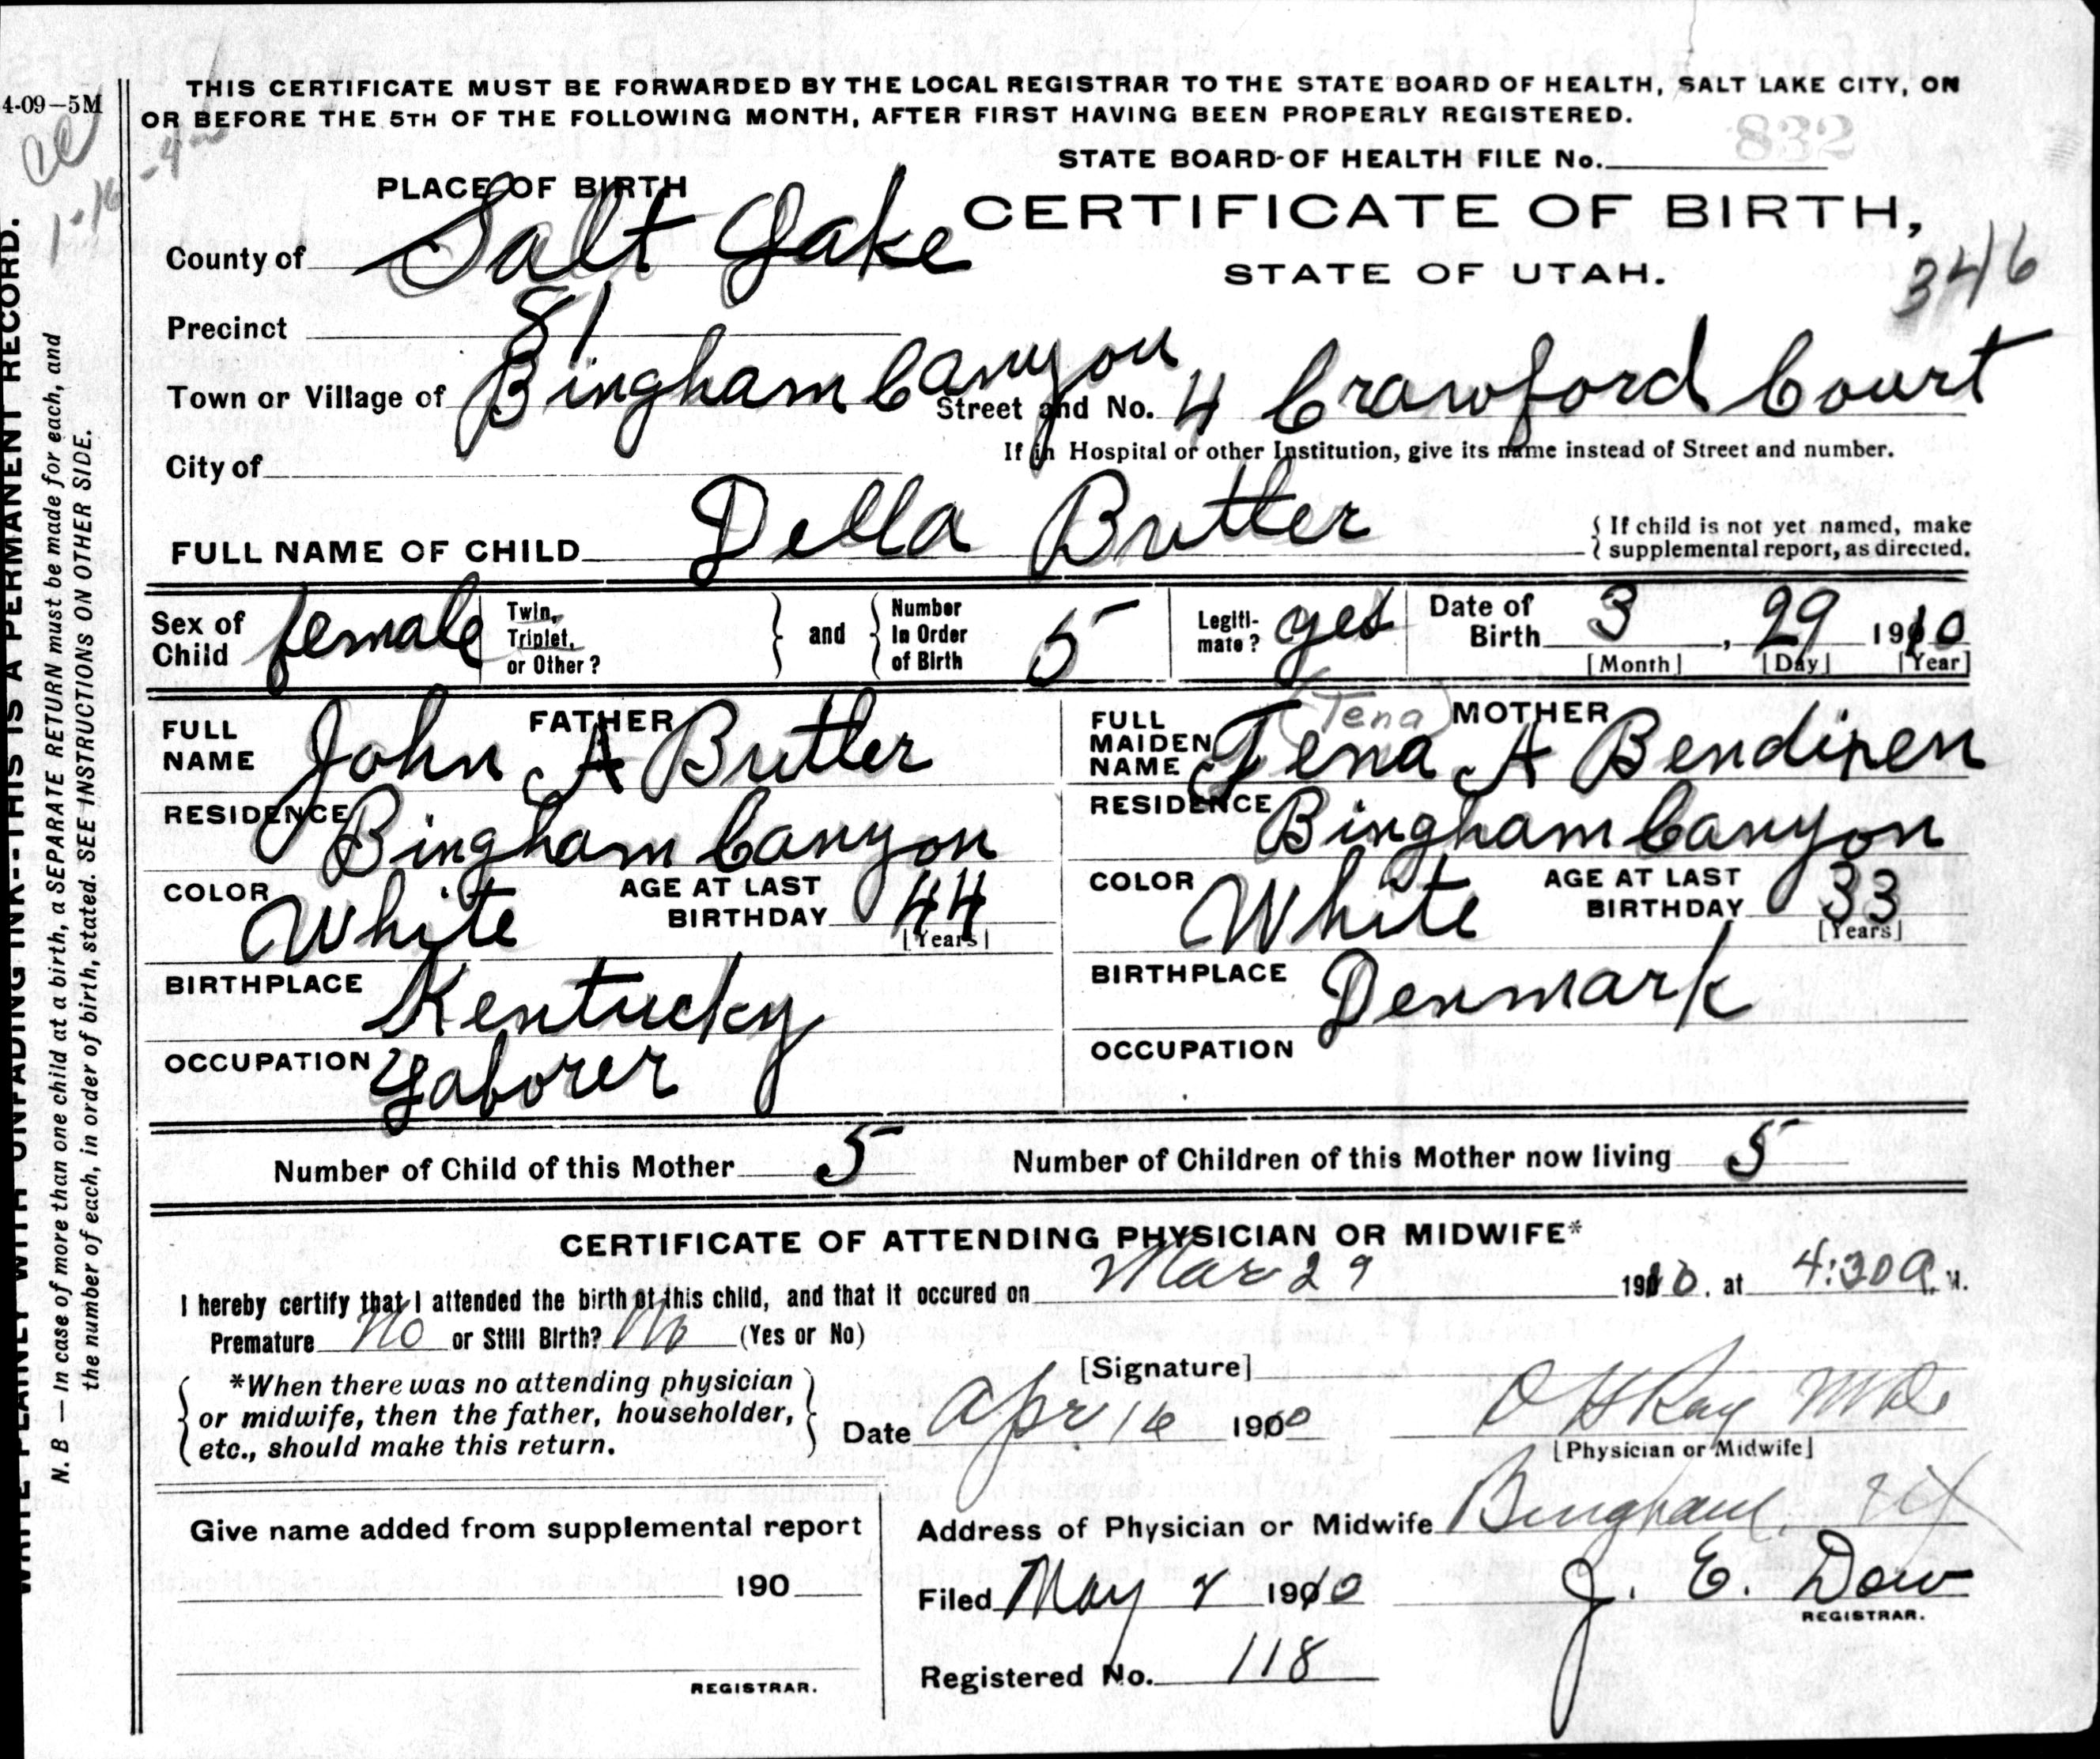 4-09-5M
THIS CERTIFICATE MUST BE FORWARDED BY THE LOCAL REGISTRAR TO THE STATE BOARD OF HEALTH, SALT LAKE CITY, ON
OR BEFORE THE 5TH OF THE FOLLOWING MONTH, AFTER FIRST HAVING BEEN PROPERLY REGISTERED.
STATE BOARD OF HEALTH FILE No. 832
PLACE OF BIRTH
CERTIFICATE OF BIRTH,
County of Salt Lake
STATE OF UTAH.
346
Precinct 81
Town or Village of Bingham Canyon Street and No. 4 Crawford Court
If in Hospital or other Institution, give its name instead of Street and number.
City of
FULL NAME OF CHILD Della Butler { If child is not yet named, make
supplemental report, as directed.
Sex of Child female Twin, Triplet, or Other? } and { Number in Order of Birth 5 Legitimate? yes Date of Birth 3, 29 1910
[Month] [Day] [Year]
FATHER
FULL NAME John A Butler
RESIDENCE Bingham Canyon
COLOR White AGE AT LAST BIRTHDAY 44
[Years]
BIRTHPLACE Kentucky
OCCUPATION Laborer
(Tena) MOTHER
FULL MAIDEN NAME Tena A Bendixen
RESIDENCE Bingham Canyon
COLOR White AGE AT LAST BIRTHDAY 33
[Years]
BIRTHPLACE Denmark
OCCUPATION
Number of Child of this Mother 5 Number of Children of this Mother now living 5
CERTIFICATE OF ATTENDING PHYSICIAN OR MIDWIFE*
I hereby certify that I attended the birth of this child, and that it occured on Mar 29 1910, at 4:30 A. M.
Premature No or Still Birth? No (Yes or No)
[Signature] O H Ray MD
[Physician or Midwife]
{ *When there was no attending physician
or midwife, then the father, householder,
etc., should make this return. }
Date Apr 16 1910
Give name added from supplemental report
190
REGISTRAR.
Address of Physician or Midwife Bingham, Ut
Filed May 1910 J. E. Dow
REGISTRAR.
Registered No. 118
WRITE PLAINLY WITH UNFADING INK--THIS IS A PERMANENT RECORD.
N. B — In case of more than one child at a birth, a SEPARATE RETURN must be made for each, and
the number of each, in order of birth, stated. SEE INSTRUCTIONS ON OTHER SIDE.